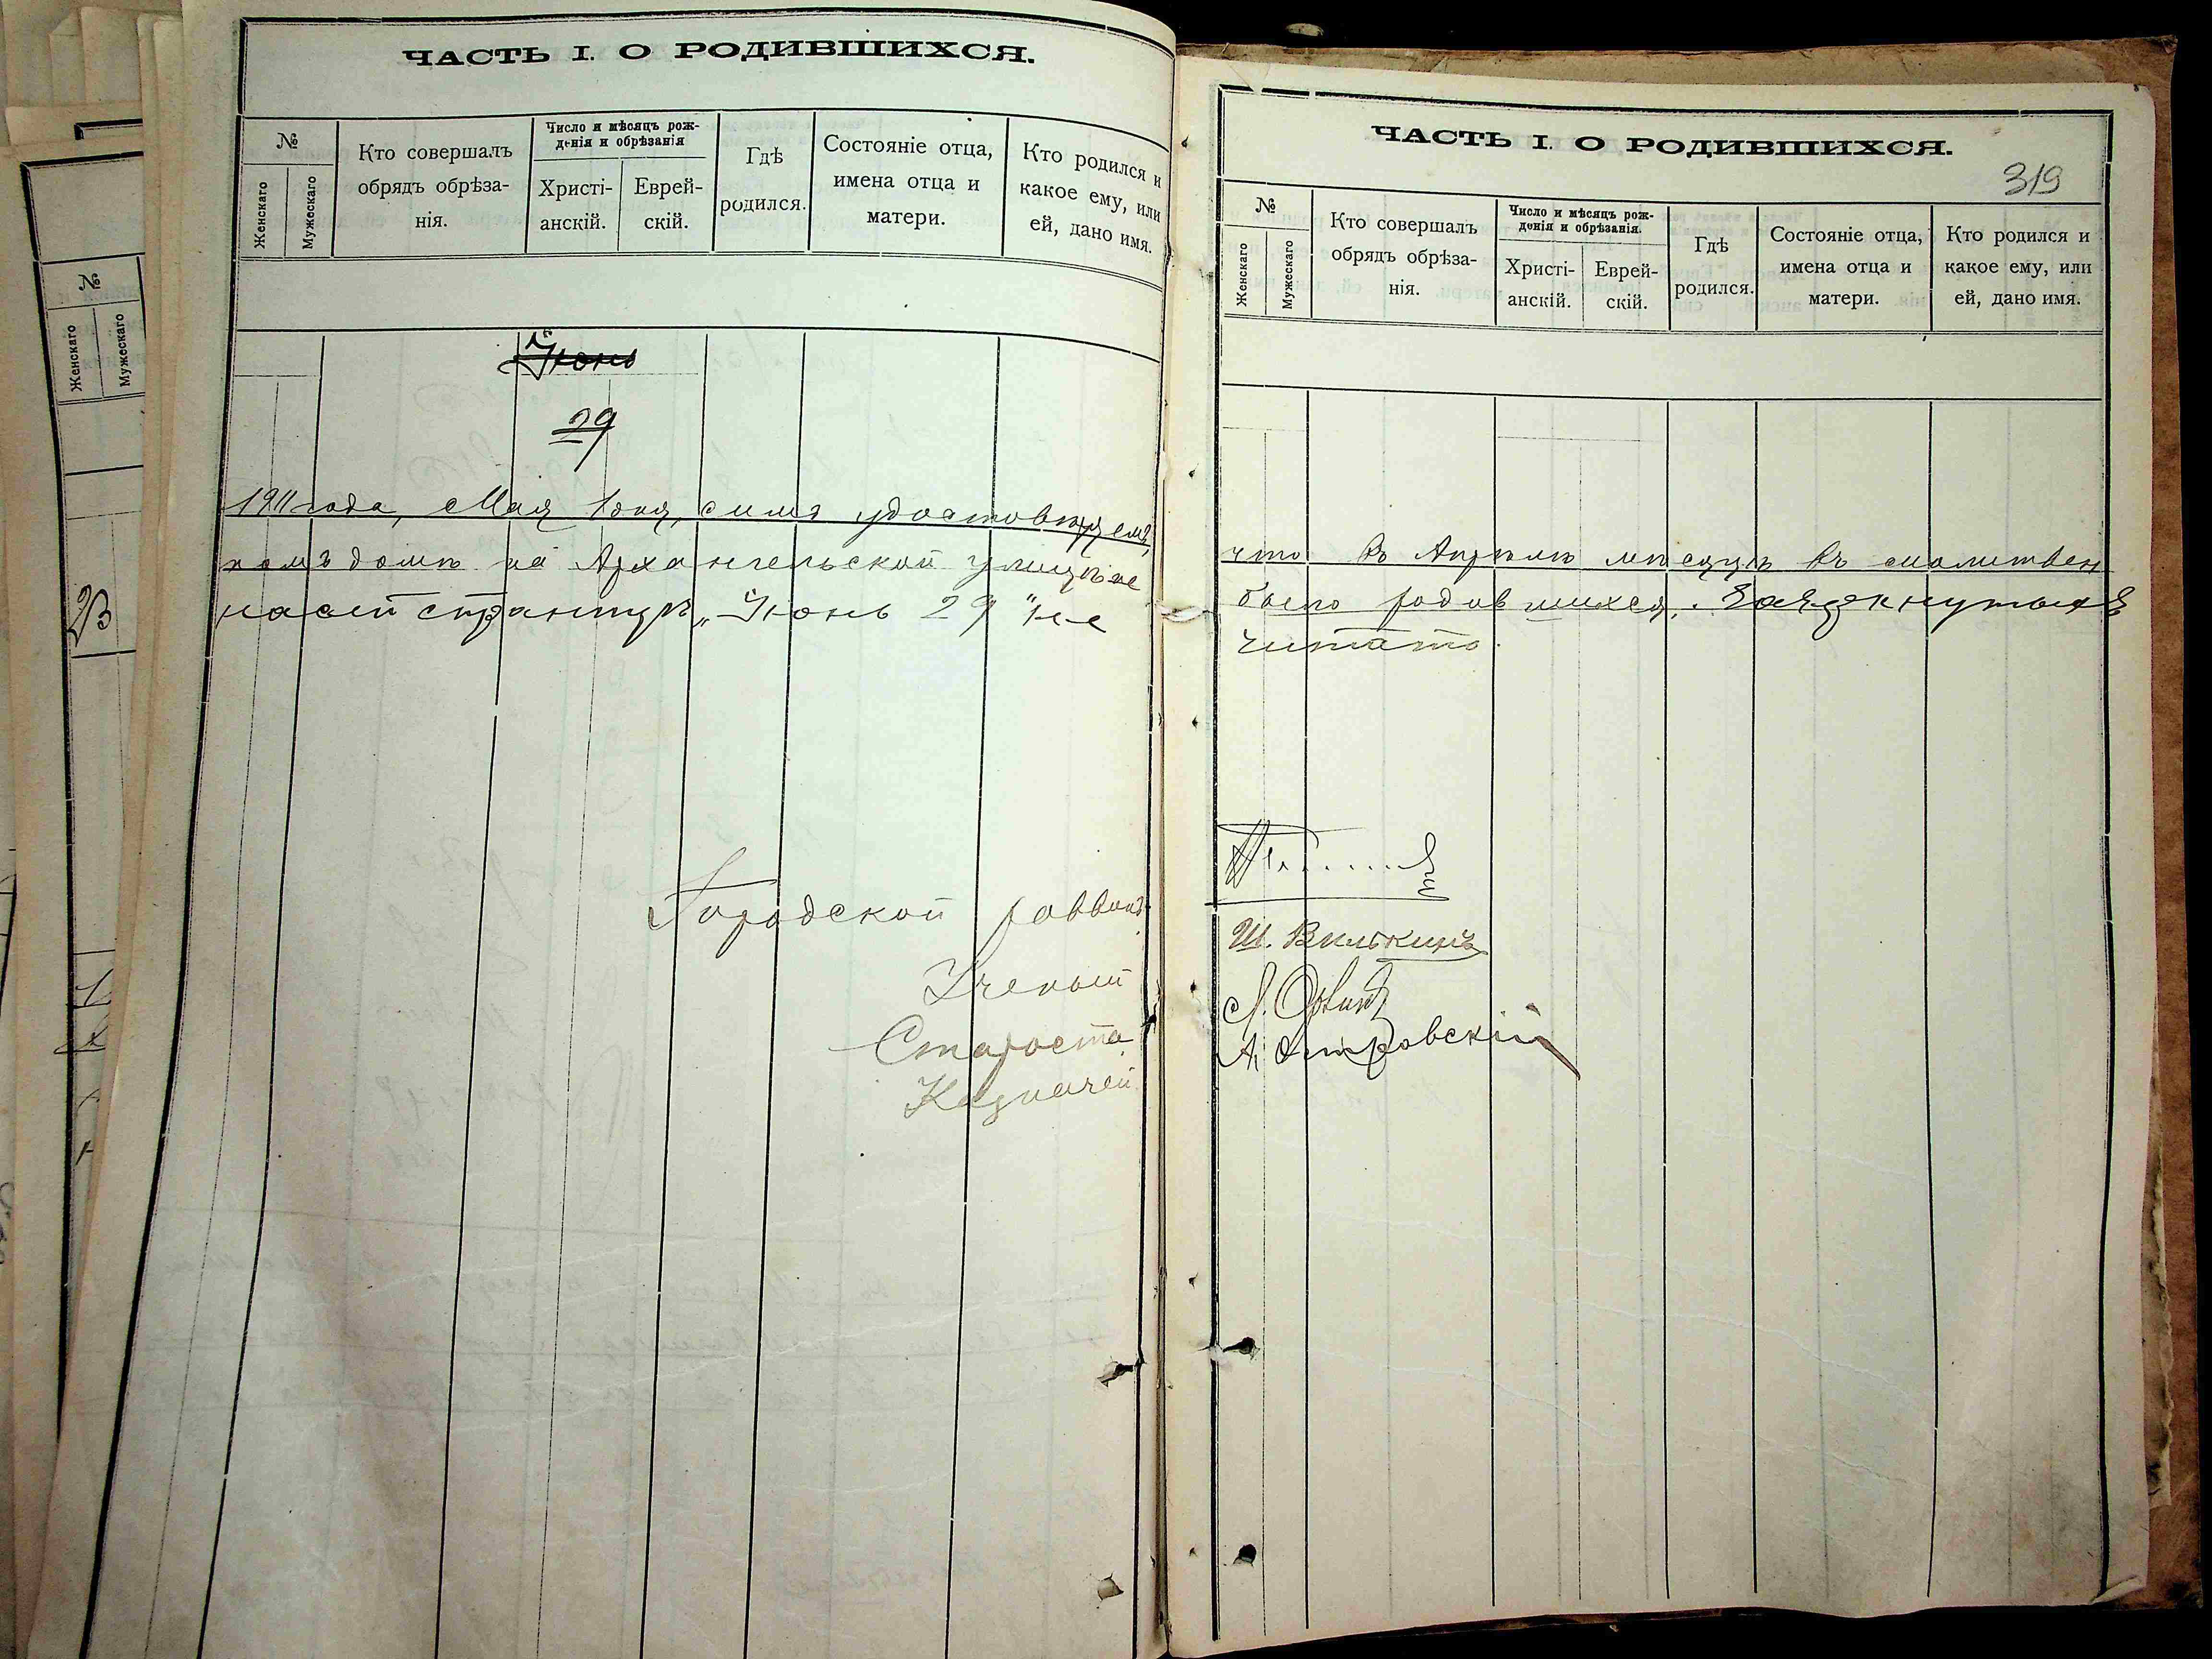 ЧАСТЬ I. О РОДИВШИХСЯ.
№
Женскаго
Мужескаго
Кто совершалъ
обрядъ обрѣза-
нія.
Число и мѣсяцъ рож-
денія и обрѣзанія
Христі-
анскій.
Еврей-
скій.
Гдѣ
родился.
Состояніе отца,
имена отца и
матери.
Кто родился и
какое ему, или
ей, дано имя.
Іюнь
29
1911 года, Мая 1 дня, симъ удостовѣряемъ,
номъ домѣ на Архангельской улицѣ не
на сей страницѣ „Іюнь 29" не
Городской раввинъ
Ученый
Староста
Казначей
№
Женскаго
Мужескаго
ЧАСТЬ I. О РОДИВШИХСЯ.
319
№
Женскаго
Мужескаго
Кто совершалъ
обрядъ обрѣза-
нія.
Число и мѣсяцъ рож-
денія и обрѣзанія.
Христі-
анскій.
Еврей-
скій.
Гдѣ
родился.
Состояніе отца,
имена отца и
матери.
Кто родился и
какое ему, или
ей, дано имя.
что въ Апрѣлѣ мѣсяцѣ въ молитвен
было родившихся. Зачеркнутыхъ
читать.
Ш. Вилькинъ
А. Островскій